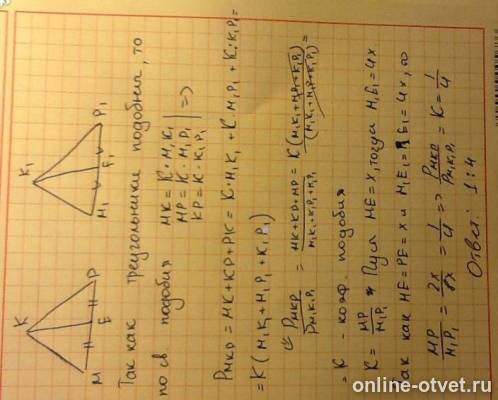 K
M E P
K₁
M₁ E₁ P₁
Так как треугольники подобны, то
по св. подобия
MK = K · M₁K₁
MP = K · M₁P₁
KP = K · K₁P₁ | =>
P_MKP = MK + KP + PK = K · M₁K₁ + K · M₁P₁ + K · K₁P₁ =
= K (M₁K₁ + M₁P₁ + K₁P₁)
P_MKP / P_M₁K₁P₁ = (MK + KP + MP) / (M₁K₁ + K₁P₁ + M₁P₁) = K (M₁K₁ + M₁P₁ + K₁P₁) / (M₁K₁ + M₁P + K₁P₁) =
= K - коэф. подобия
K = MP / M₁P₁ Пусть ME = x, тогда M₁E₁ = 4x
Так как ME = PE = x и M₁E₁ = P₁E₁ = 4x, то
MP / M₁P₁ = 2x / 8x = 1 / 4 => P_MKP / P_M₁K₁P₁ = K = 1 / 4
Ответ: 1:4
online-otvet.ru